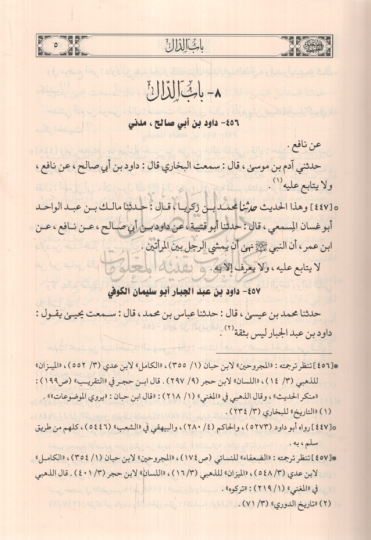 باب الذال
٥
٨- باب الذال
٤٥٦- داود بن أبي صالح، مدني
عن نافع .
حدثني آدم بن موسى، قال: سمعت البخاري قال: داود بن أبي صالح، عن نافع،
ولا يتابع عليه(١).
[٤٤٧]* وهذا الحديث حدثنا محمد بن زكريا، قال: حدثنا مالك بن عبد الواحد
أبو غسان المسمعي، قال: حدثنا أبو قتيبة، عن داود بن أبي صالح، عن نافع، عن
ابن عمر، أن النبي ﷺ نهى أن يمشي الرجل بين المرأتين.
لا يتابع عليه، ولا يعرف إلا به.
٤٥٧- داود بن عبد الجبار أبو سليمان الكوفي
حدثنا محمد بن عيسى، قال: حدثنا عباس بن محمد، قال: سمعت يحيى يقول:
داود بن عبد الجبار ليس بثقة(٢).
*[٤٥٦] تنظر ترجمته: «المجروحين» لابن حبان (١/ ٣٥٥)، «الكامل» لابن عدي (٣/ ٥٥٢)، «الميزان»
للذهبي (٣/ ١٤)، «اللسان» لابن حجر (٩/ ٢٩٧). قال ابن حجر في «التقريب» (ص١٩٩):
«منكر الحديث»، وقال الذهبي في «المغني» (١/ ٢١٨): «قال ابن حبان: «يروي الموضوعات»».
(١) «التاريخ» للبخاري (٣/ ٢٣٤).
*[٤٤٧] رواه أبو داود (٥٢٧٣)، والحاكم (٤/ ٢٨٠)، والبيهقي في «الشعب» (٥٤٤٦)، كلهم من طريق
سلم، به.
*[٤٥٧] تنظر ترجمته: «الضعفاء» للنسائي (ص١٧٤)، «المجروحين» لابن حبان (١/ ٣٥٤)، «الكامل»
لابن عدي (٣/ ٥٤٨)، «الميزان» للذهبي (٣/ ١٦)، «اللسان» لابن حجر (٣/ ٤٠١). قال الذهبي
في «المغني» (١/ ٢١٩): «تركوه».
(٢) «تاريخ الدوري» (٣/ ٧١).